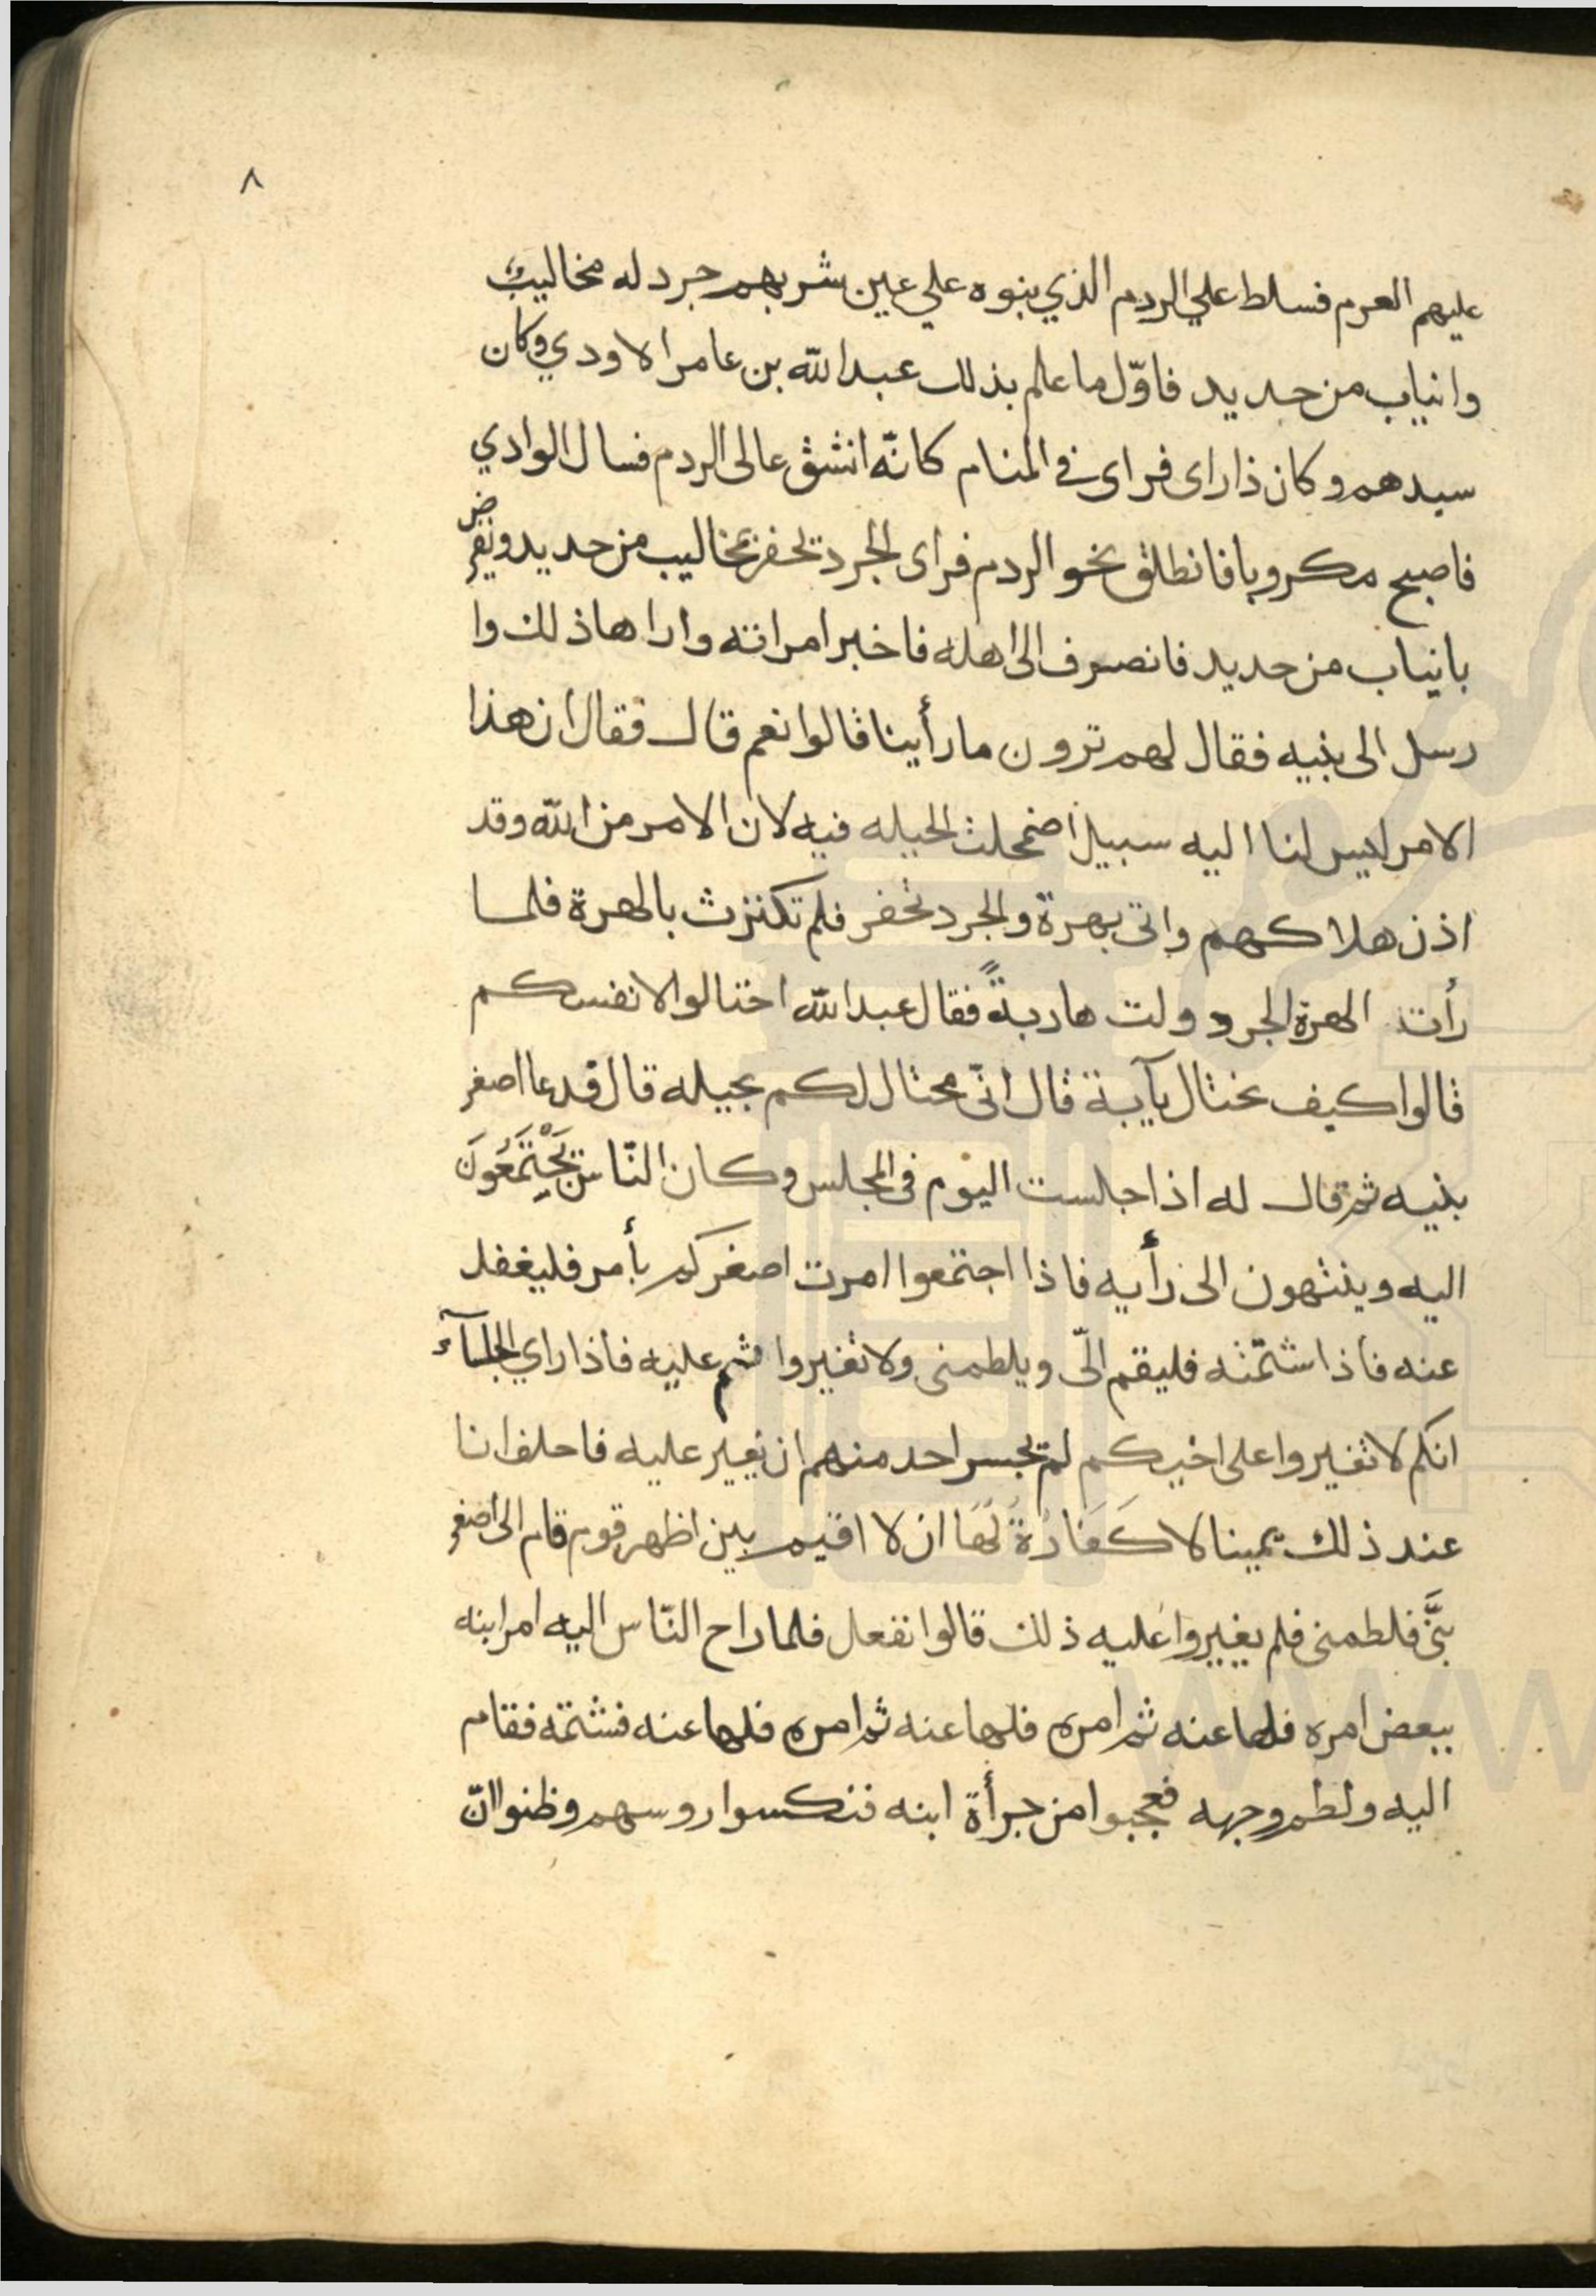 ٨
عليهم العرم فسلط علي الردم الذي بنوه علي عين شربهم جرد له مخاليب
وانياب من حديد فاوّل ما علم بذلك عبد الله بن عامر الاودي وكان
سيدهم وكان ذا راى فراى في المنام كانّه انشق عالى الردم فسال الوادي
فاصبح مكروبا فانطلق نحو الردم فراى الجرد تحفر بمخاليب من حديد ونقرض
بانياب من حديد فانصرف الى اهله فاخبر امراته واراها ذلك وا
رسل الى بنيه فقال لهم ترون ما رأينا قالوا نعم قال فقال ان هذا
الامر ليس لنا اليه سبيل اضمحلت الحيله فيه لان الامر من الله وقد
اذن هلاكهم واتى بهرة والجرد تحفر فلم تكترث بالهرة فلما
رأت الهرة الجرد ولت هاربةً فقال عبد الله احتالوا لانفسكم
قالوا كيف نحتال يآبة قال انّى محتال لكم بحيله قال فدعا اصغر
بنيه ثم قال له اذا جلست اليوم فى المجلس وكان النّاس يَجْتَمَعُونَ
اليه وينتهون الى رأيه فاذا اجتمعوا امرت اصغركم بأمر فليغفل
عنه فاذا شتمته فليقم الىّ ويلطمنى ولا تغيروا عليه فاذا راي الجلسآء
انكم لا تغيروا على اخيكم لم يجسر احد منهم ان يغير عليه فاحلف انا
عند ذلك يمينا لا كَفَارُةً لَهَا ان لا اقيم بين اظهر قوم قام الى اصغر
بَنَّى فلطمنى فلم يغيروا عليه ذلك قالوا نفعل فلما راح النّاس اليه امر ابنه
ببعض امره فلها عنه ثم امره فلها عنه ثم امره فلها عنه فشتمه فقام
اليه ولطم وجهه فعجبوا من جرأة ابنه فنكسوا روسهم وظنوا انّ